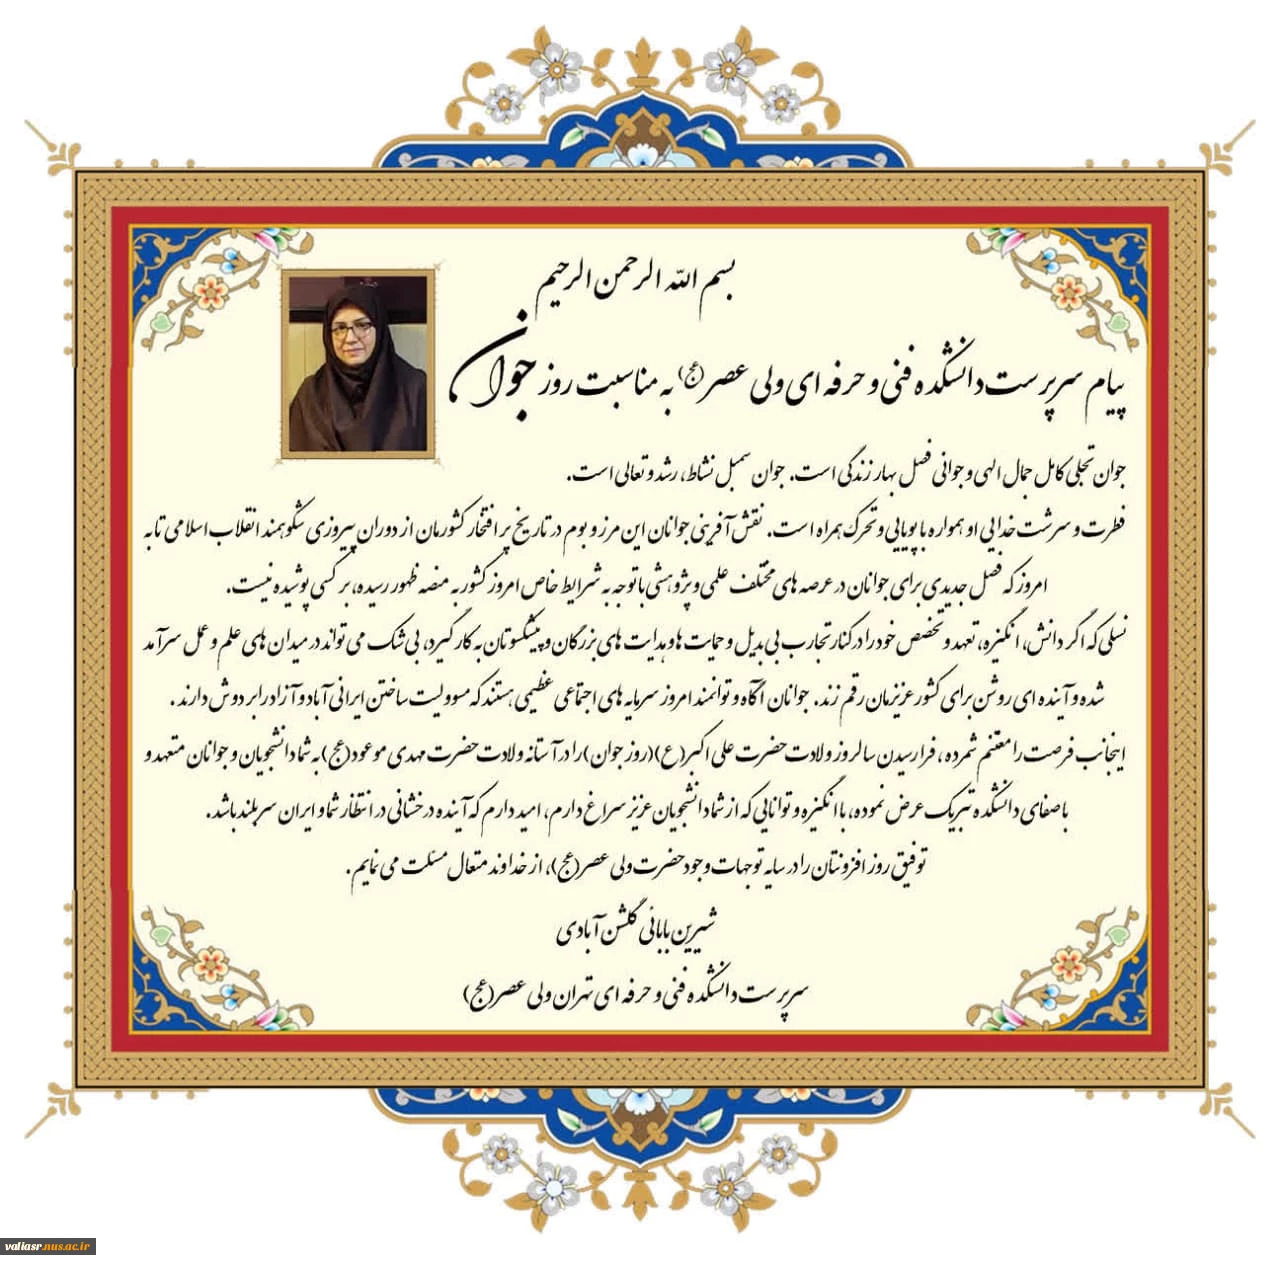 بسم الله الرحمن الرحیم
پیام سرپرست دانشکده فنی و حرفه ای ولی عصر(عج) به مناسبت روز جوان
جوان تجلی کامل جمال الهی و جوانی فصل بهار زندگی است. جوان سمبل نشاط، رشد و تعالی است.
فطرت و سرشت خدایی او همواره با پویایی و تحرک همراه است. نقش آفرینی جوانان این مرز و بوم در تاریخ پر افتخار کشورمان از دوران پیروزی شکوهمند انقلاب اسلامی تا به
امروز که فصل جدیدی برای جوانان در عرصه های مختلف علمی و پژوهشی با توجه به شرایط خاص امروز کشور به منصه ظهور رسیده، بر کسی پوشیده نیست.
نسلی که اگر دانش، انگیزه، تعهد و تخصص خود را در کنار تجارب بی بدیل و حمایت ها و هدایت های بزرگان و پیشکسوتان به کار گیرد، بی شک می تواند در میدان های علم و عمل سرآمد
شده و آینده ای روشن برای کشور عزیزمان رقم زند. جوانان آگاه و توانمند امروز سرمایه های اجتماعی عظیمی هستند که مسوولیت ساختن ایرانی آباد و آزاد را بر دوش دارند .
اینجانب فرصت را مغتنم شمرده ، فرارسیدن سالروز ولادت حضرت علی اکبر(ع)(روز جوان) را در آستانه ولادت حضرت مهدی موعود(عج) به شما دانشجویان و جوانان متعهد و
باصفای دانشکده تبریک عرض نموده، با انگیزه و توانایی که از شما دانشجویان عزیز سراغ دارم، امید دارم که آینده درخشانی در انتظار شما و ایران سربلند باشد.
توفیق روز افزونتان را در سایه توجهات وجود حضرت ولی عصر(عج)، از خداوند متعال مسئلت می نمایم.
شیرین بابائی گلشن آبادی
سرپرست دانشکده فنی و حرفه ای تهران ولی عصر(عج)
valiasr.nus.ac.ir